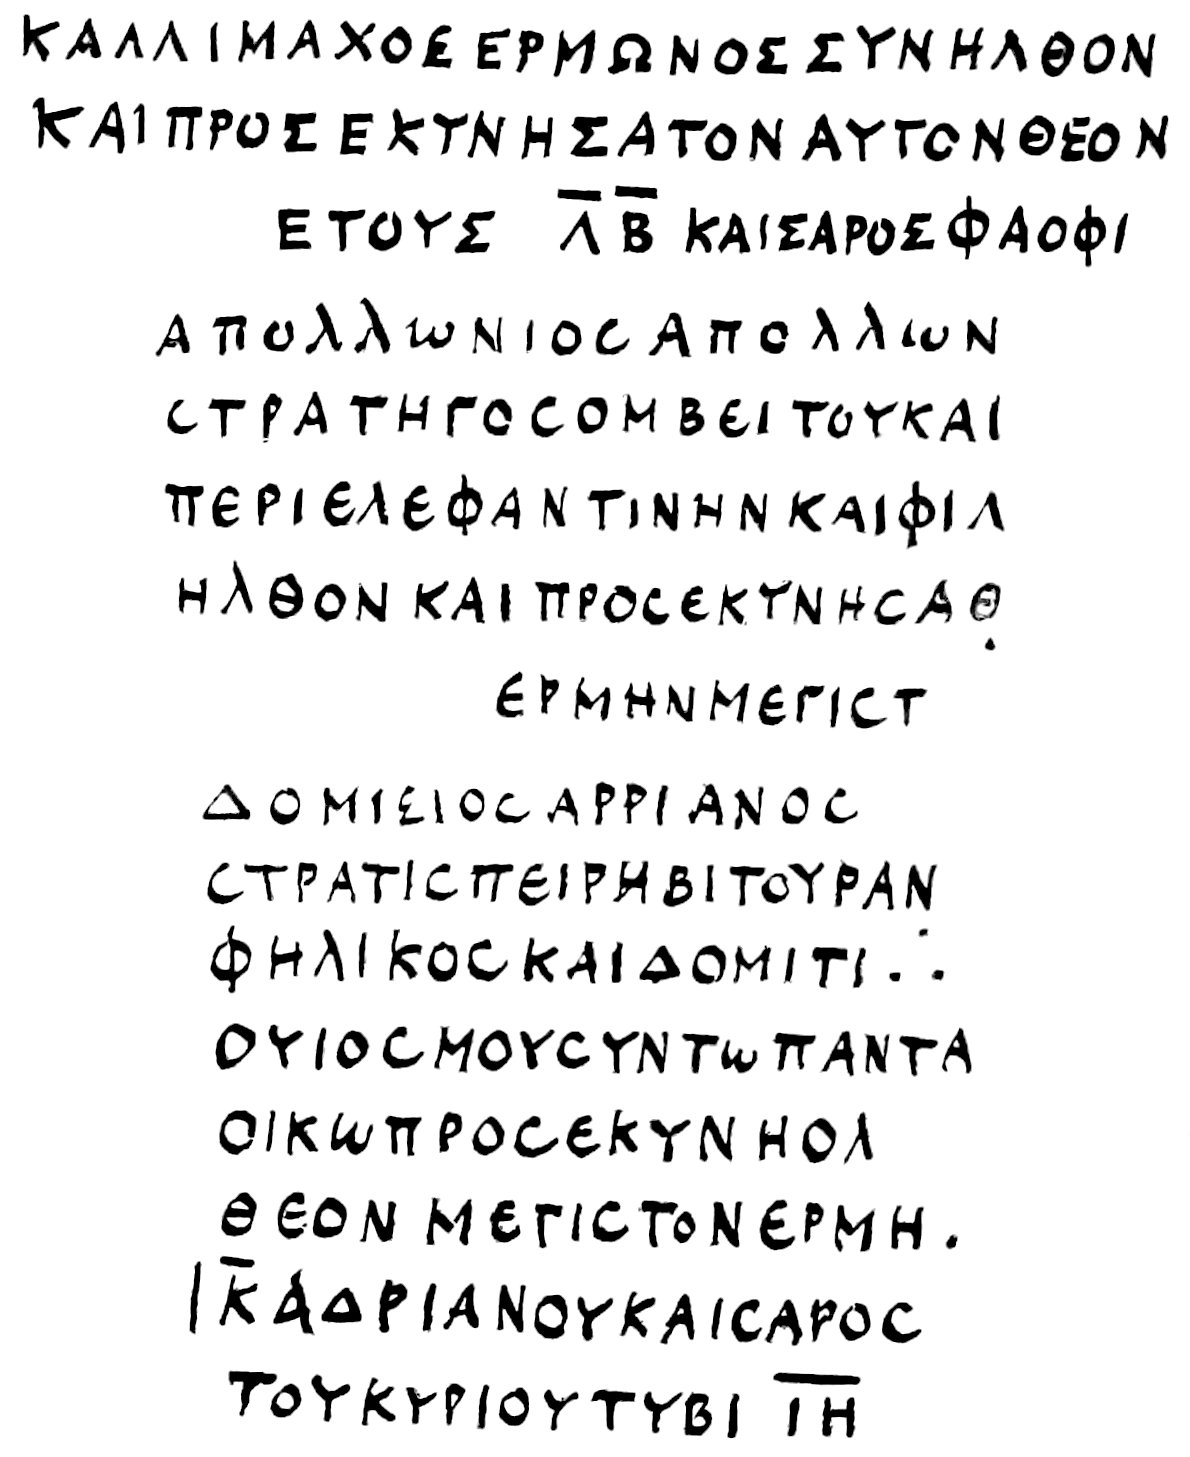 ΚΑΛΛΙΜΑΧΟΕ ΕΡΜΩΝΟΣ ΣΥΝΗΛΘΟΝ
ΚΑΙ ΠΡΟΣΕΚΥΝΗΣΑ ΤΟΝ ΑΥΓΟΝ ΘΕΟΝ
ΕΤΟΥΣ Λ̅Β̅ ΚΑΙΣΑΡΟΣ ΦΑΟΦΙ
ΑΠΟΛΛΩΝΙΟϹ ΑΠΟΛΛΙΟΝ
ϹΤΡΑΤΗΓΟϹ ΟΜΒΕΙΤΟΥ ΚΑΙ
ΠΕΡΙ ΕΛΕΦΑΝΤΙΝΗΝ ΚΑΙ ΦΙΛ
ΗΛΘΟΝ ΚΑΙ ΠΡΟϹΕΚΥΝΗϹΑ Θ
ΕΡΜΗΝ ΜΕΓΙϹΤ
ΔΟΜΙΣΙΟϹ ΑΡΡΙΑΝΟϹ
ϹΤΡΑΤΙϹ ΠΕΙΡΗΒΙΤΟΥΡΑΝ
ΦΗΛΙΚΟϹ ΚΑΙ ΔΟΜΙΤΙ . ∴
Ο ΥΙΟϹ ΜΟΥ ϹΥΝ ΤΩ ΠΑΝΤΑ
ΟΙΚΩ ΠΡΟϹΕΚΥΝΗ ΟΛ
ΘΕΟΝ ΜΕΓΙϹΤΟΝ ΕΡΜΗ .
Ι Κ̅ ΑΔΡΙΑΝΟΥ ΚΑΙϹΑΡΟϹ
ΤΟΥ ΚΥΡΙΟΥ ΤΥΒΙ Ι̅Η̅